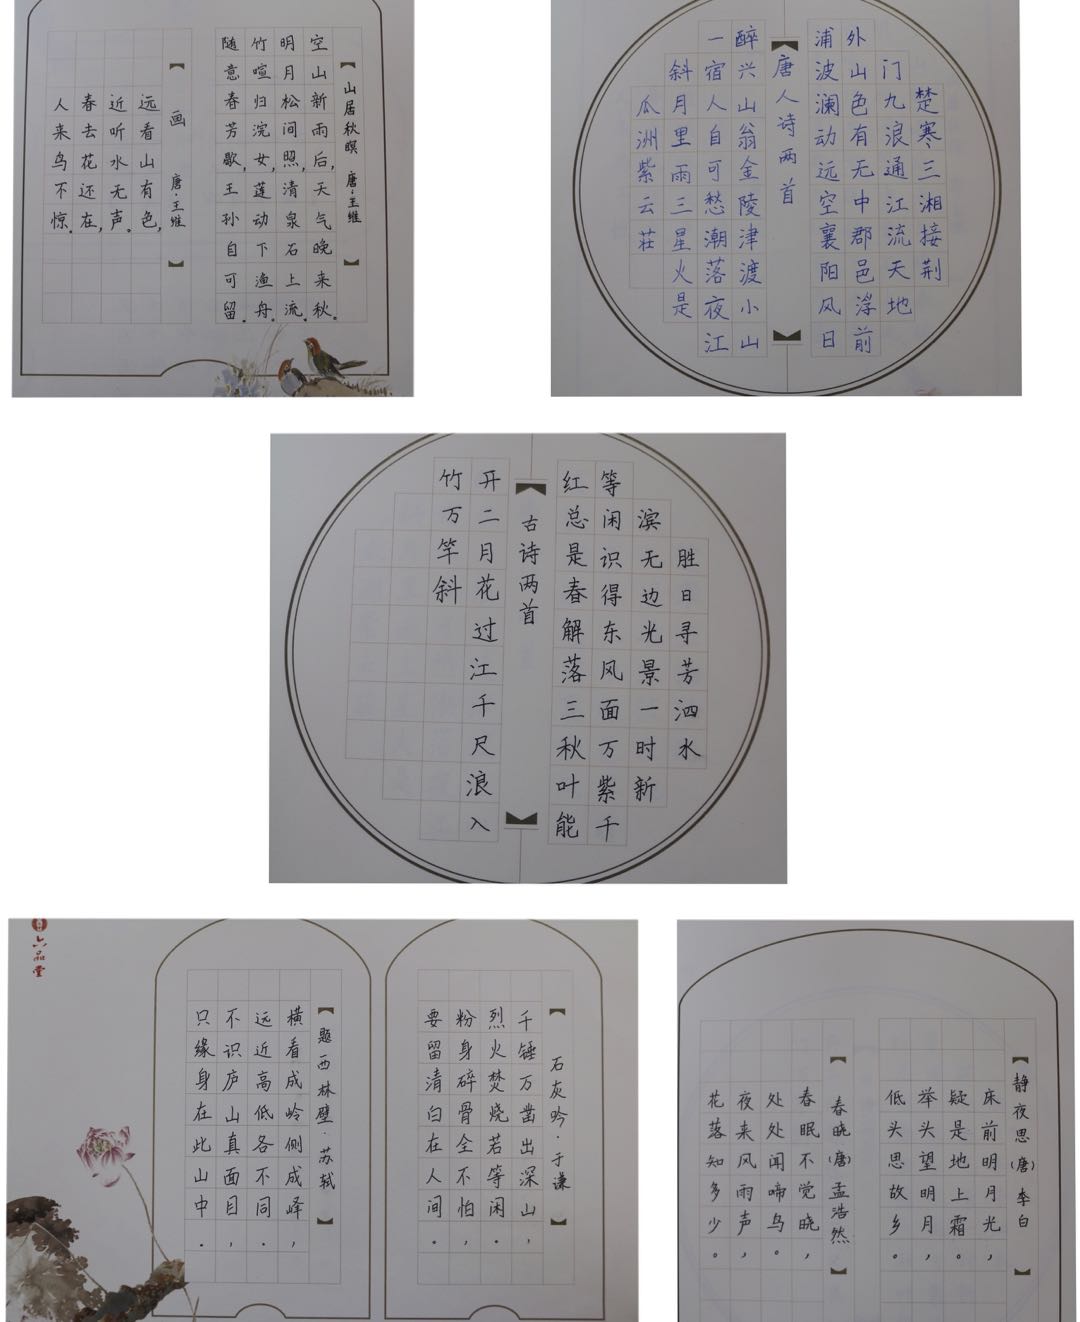 【山居秋暝 唐·王维】
空山新雨后,天气晚来秋。
明月松间照,清泉石上流。
竹喧归浣女,莲动下渔舟。
随意春芳歇,王孙自可留。
【画 唐·王维】
远看山有色,
近听水无声。
春去花还在,
人来鸟不惊。
楚寒三湘接荆
门九浪通江流天地
外山色有无中郡邑浮前
浦波澜动远空襄阳风日
【唐人诗两首】
醉兴山翁金陵津渡小山
一宿人自可愁潮落夜江
斜月里雨三星火是
瓜洲紫云荘
胜日寻芳泗水
滨无边光景一时新
等闲识得东风面万紫千
红总是春解落三秋叶能
【古诗两首】
开二月花过江千尺浪入
竹万竿斜
六品堂
【石灰吟·于谦】
千锤万凿出深山,
烈火焚烧若等闲.
粉身碎骨全不怕,
要留清白在人间。
【题西林壁·苏轼】
横看成岭侧成峰,
远近高低各不同.
不识庐山真面目,
只缘身在此山中.
【静夜思(唐)李白】
床前明月光,
疑是地上霜。
举头望明月,
低头思故乡。
【春晓(唐)孟浩然】
春眠不觉晓,
处处闻啼鸟。
夜来风雨声,
花落知多少。